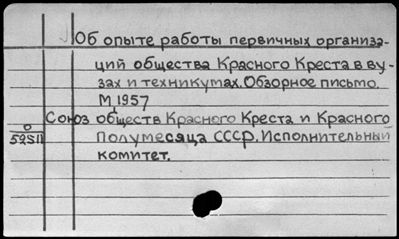 Об опыте работы первичных организа-
ций общества Красного Креста в ву-
зах и техникумах. Обзорное письмо.
М, 1957
Союз обществ Красного Креста и Красного
Полумесяца СССР. Исполнительный
комитет.